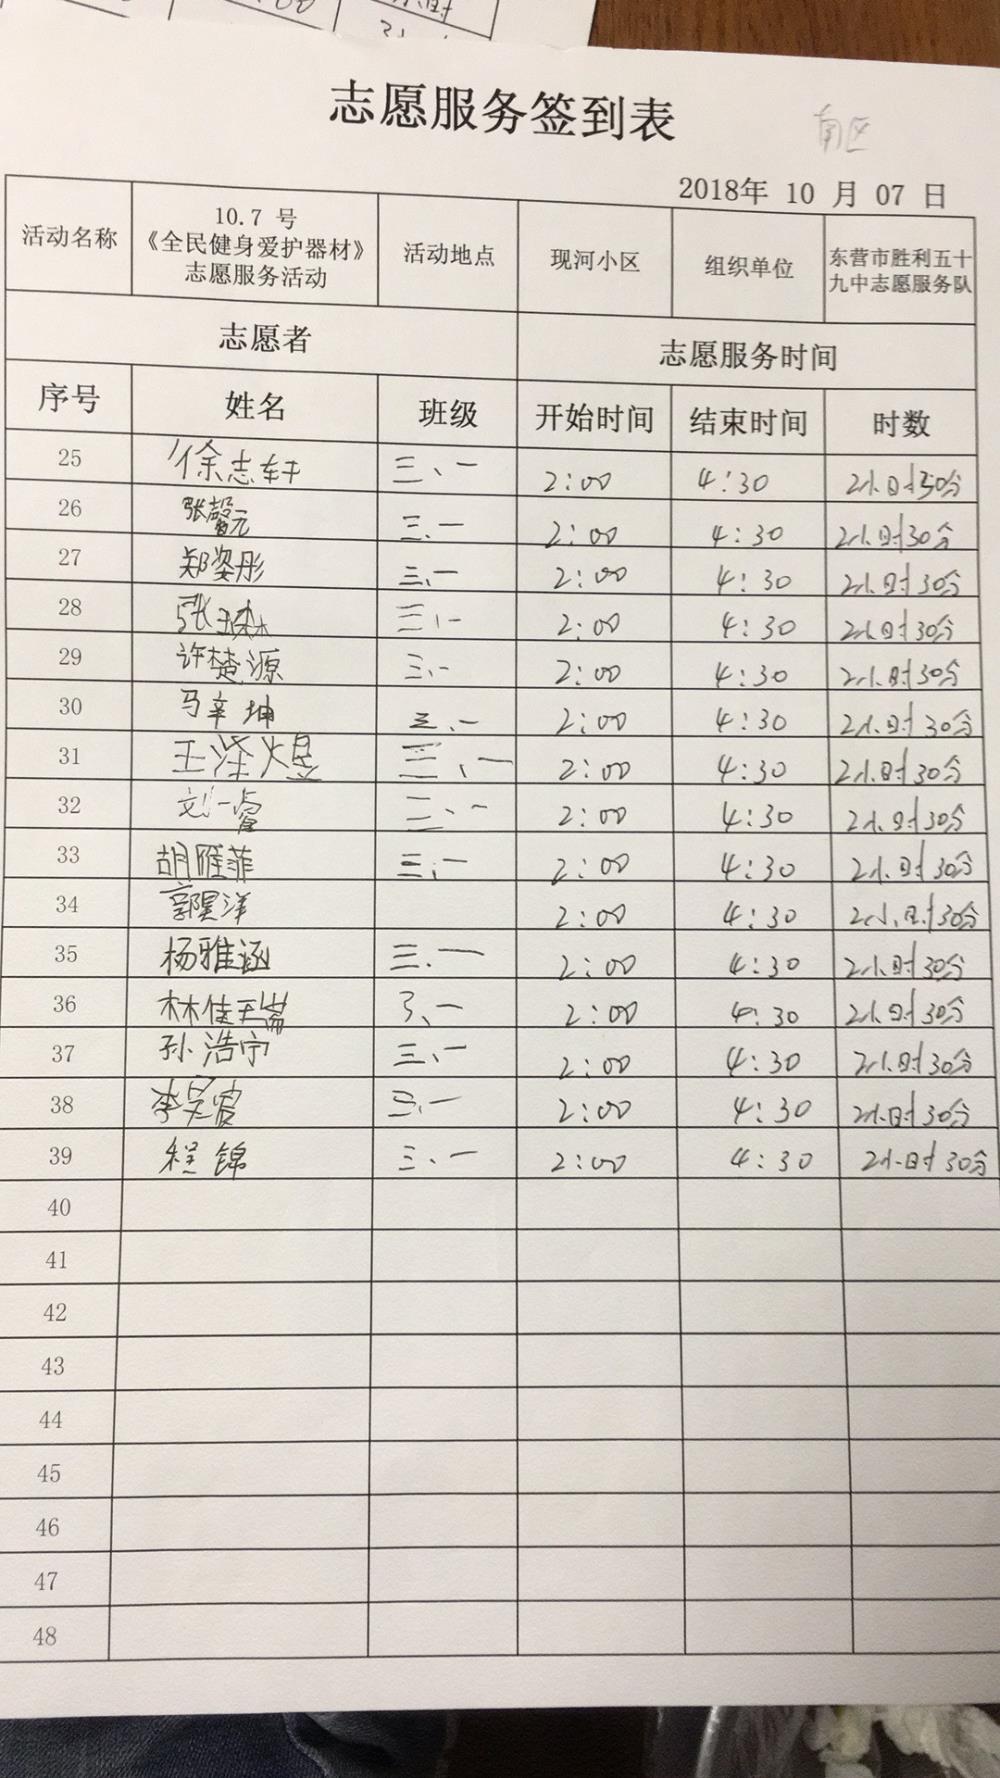 志愿服务签到表
南区
2018年 10 月 07 日
活动名称 10.7 号《全民健身爱护器材》志愿服务活动 活动地点 现河小区 组织单位 东营市胜利五十九中志愿服务队
志愿者 志愿服务时间
序号 姓名 班级 开始时间 结束时间 时数
25 徐志轩 三、一 2:00 4:30 2小时50分
26 张馨元 三、一 2:00 4:30 2小时30分
27 郑姿彤 三、一 2:00 4:30 2小时30分
28 张 三、一 2:00 4:30 2小时30分
29 许楚源 三、一 2:00 4:30 2小时30分
30 马辛坤 三、一 2:00 4:30 2小时30分
31 王泽煜 三、一 2:00 4:30 2小时30分
32 刘一睿 三、一 2:00 4:30 2小时30分
33 胡雁菲 三、一 2:00 4:30 2小时30分
34 郭昊洋 2:00 4:30 2小时30分
35 杨雅涵 三、一 2:00 4:30 2小时30分
36 林佳瑞 3、一 2:00 4:30 2小时30分
37 孙浩宁 三、一 2:00 4:30 2小时30分
38 李昊宸 三、一 2:00 4:30 2小时30分
39 程锦 三、一 2:00 4:30 2小时30分
40
41
42
43
44
45
46
47
48